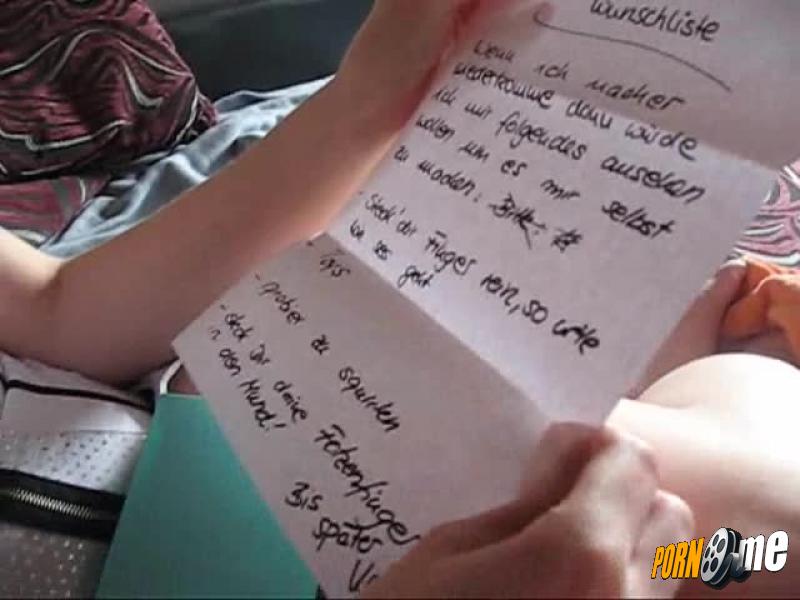 Wunschliste
Wenn ich nacher
wiederkomme dann würde
ich mir folgendes ansehen
wollen um es mir selbst
zu machen: Bitte
- Steck' dir Finger rein, so wie
es geht
- probier zu squirten
- steck dir deine Fotzenfinger
in den Mund!
Bis
später
PORN me